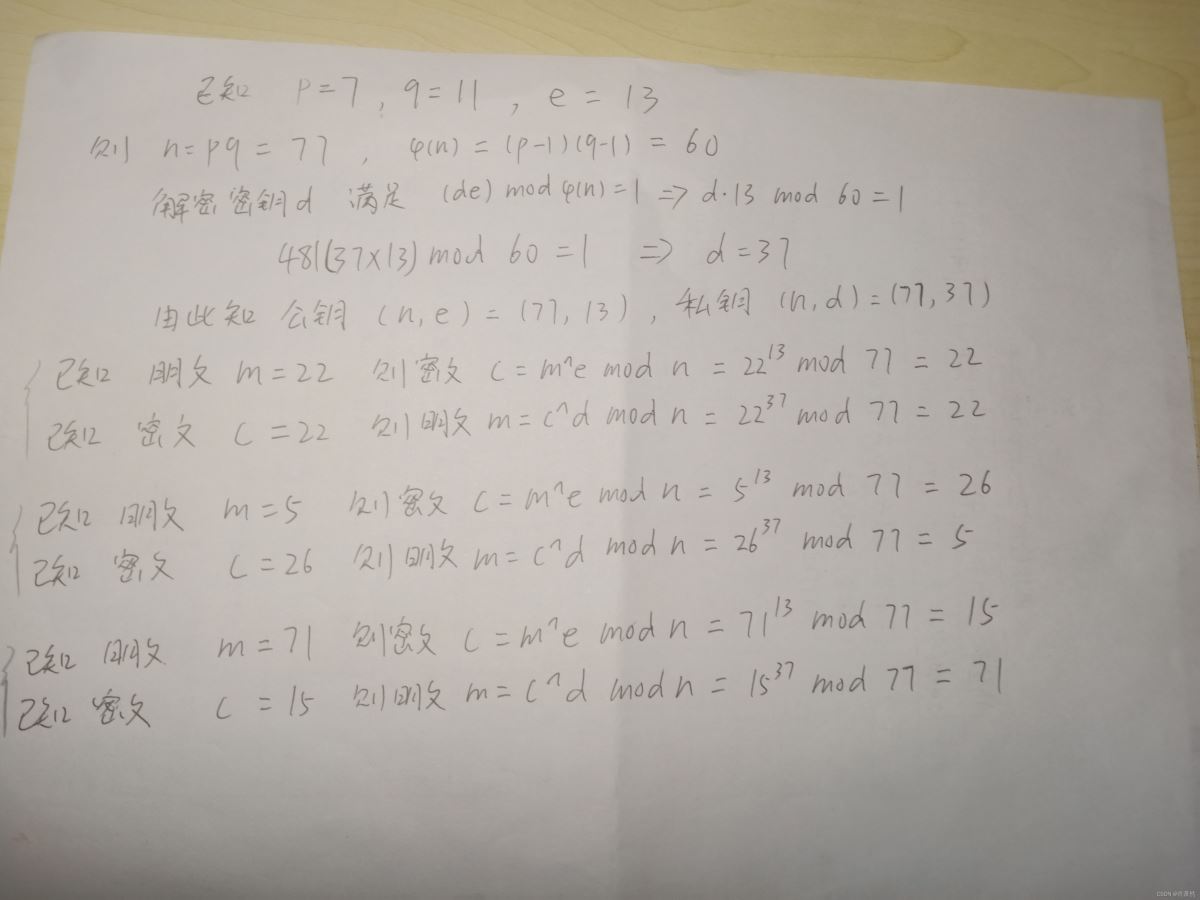 已知 p=7, q=11, e=13
则 n=pq=77, φ(n)=(p-1)(q-1)=60
解密密钥d 满足 (de) mod φ(n)=1 => d·13 mod 60=1
481(37×13) mod 60=1 => d=37
由此知 公钥 (n,e)=(77,13), 私钥 (n,d)=(77,37)
已知 明文 m=22 则密文 c=m^e mod n=22¹³ mod 77=22
已知 密文 c=22 则明文 m=c^d mod n=22³⁷ mod 77=22
已知 明文 m=5 则密文 c=m^e mod n=5¹³ mod 77=26
已知 密文 c=26 则明文 m=c^d mod n=26³⁷ mod 77=5
已知 明文 m=71 则密文 c=m^e mod n=71¹³ mod 77=15
已知 密文 c=15 则明文 m=c^d mod n=15³⁷ mod 77=71